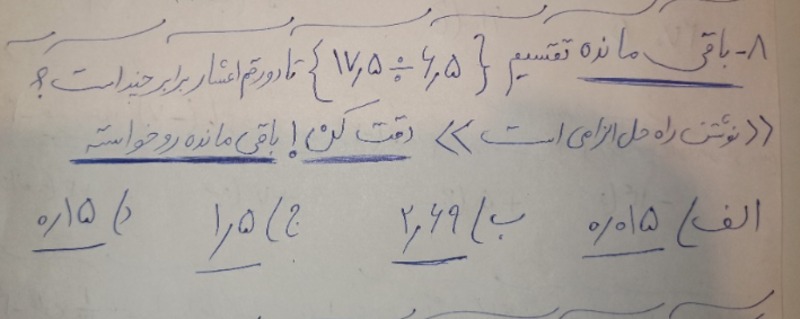 ۸- باقی مانده تقسیم {۱۷,۵ ÷ ۶,۵} تا دو رقم اعشار برابر چند است؟
<<نوشتن راه حل الزامی است>> دقت کن! باقی مانده رو خواسته
الف) ۰,۰۱۵ ب) ۲,۶۹ ج) ۱,۵ د) ۰,۱۵